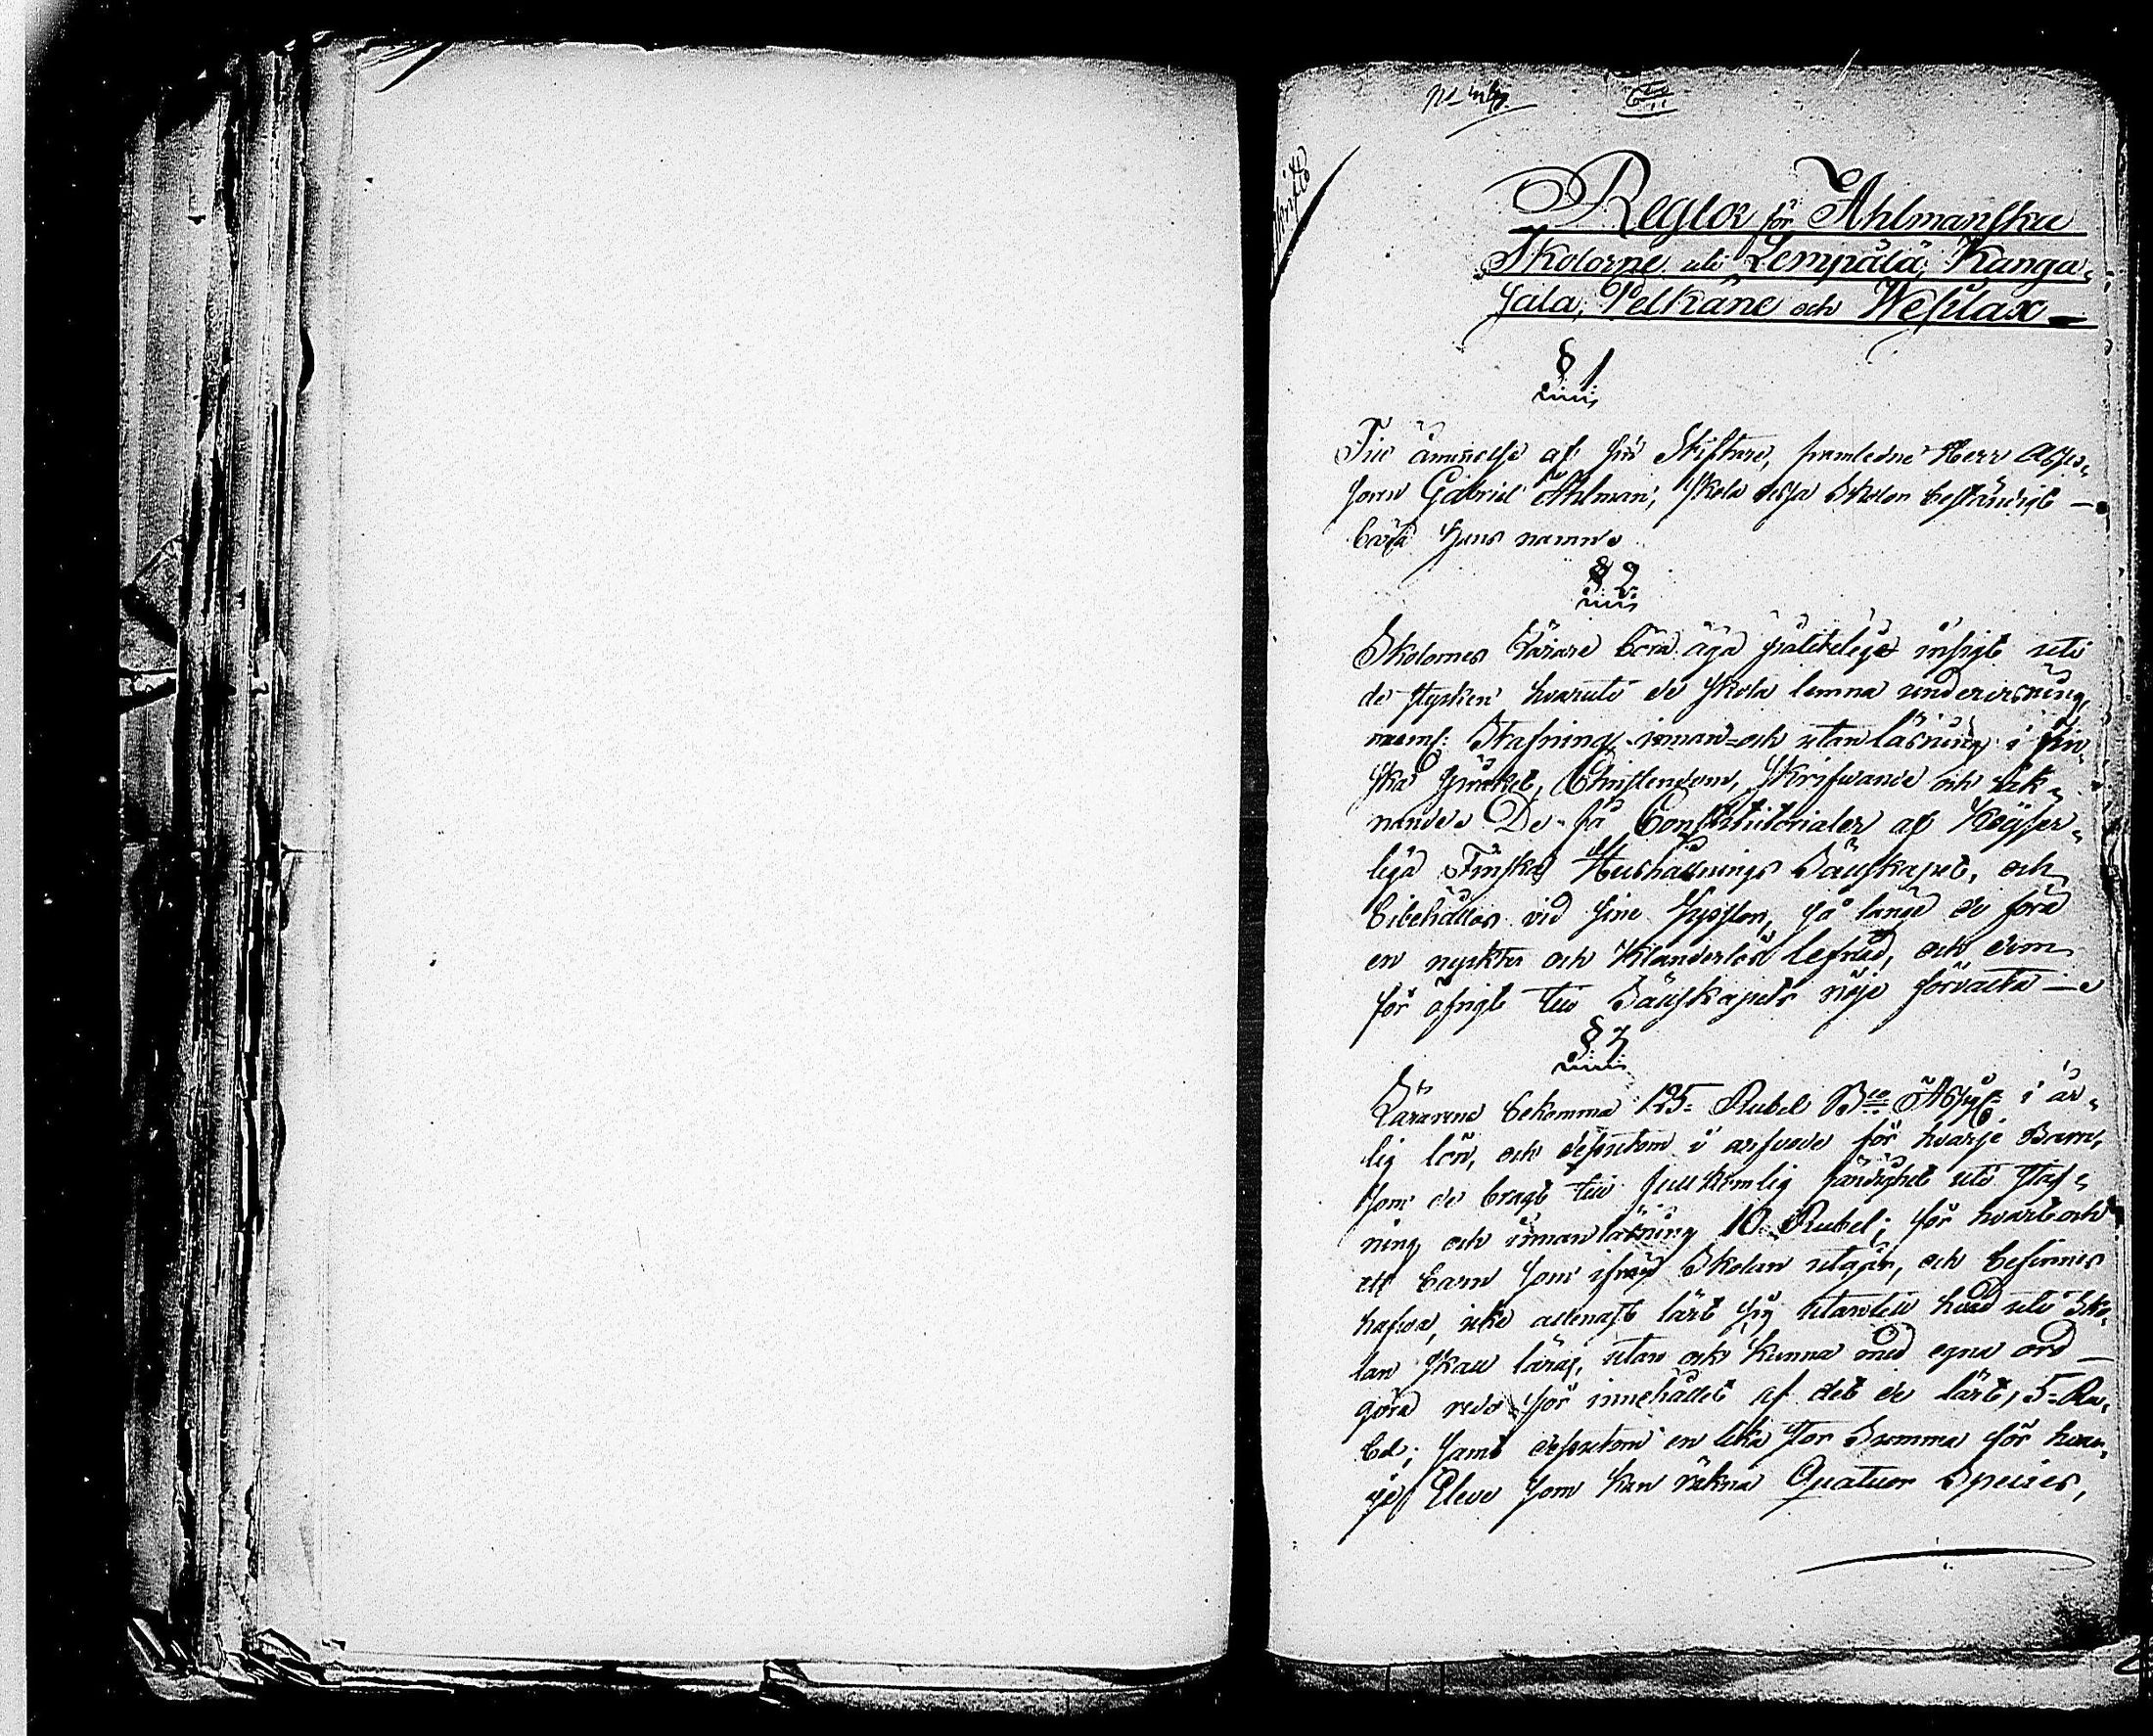 Reglor för Ahlmanska
Skolorne uti Lempälä, Kanga-
sala, Pelkäne och Wesilax
§ 1
Till åminnelse af sin Stiftare, framledne Herr Asses-
soren Gabriel Ahlman, skola dessa Skolor beständigt
bära hans namn.
§ 2
Skolornes Lärare böra äga pålitelige insigt uti
de stycken hvaruti de skola lemna undervisning,
neml: Stafning, innan- och utanläsning i Fin-
ska språket, Christendom, Skrifwande och räk-
nande. De få Constitutorialer af Kejser-
liga Finska Hushållnings Sällskapet, och
bibehållas vid sine Sysslor, så länge de föra
en nyckter och klanderlös lefnad, och dem
för öfrigt till Sällskapets nöje förvalta
§ 3
Lärarene bekomma 125 Rubel B:co Ass: i år-
lig lön, och dessutom i arfvode för hvarje Barn,
som de bragt till fullkomlig färdighet uti staf-
ning och innanläsning 10 Rubel; för hvart och
ett barn som ifrån Skolan utgår, och befinnes
hafva, icke allenast lärt sig utantill hvad uti Sko-
lan skall läras, utan ock kunna med egna ord
göra redo för innehållet af det de lärt, 5 Ru-
bel; samt dessutom en lika stor Summa för hvar-
je Eleve som kan räkna Quatuor Species,